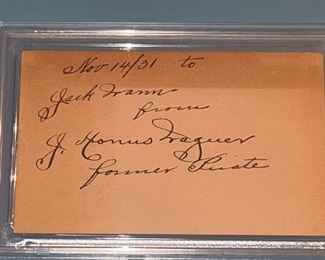 Nov 14/31 to
Jack Wann
from
J. Honus Wagner
former Pirate